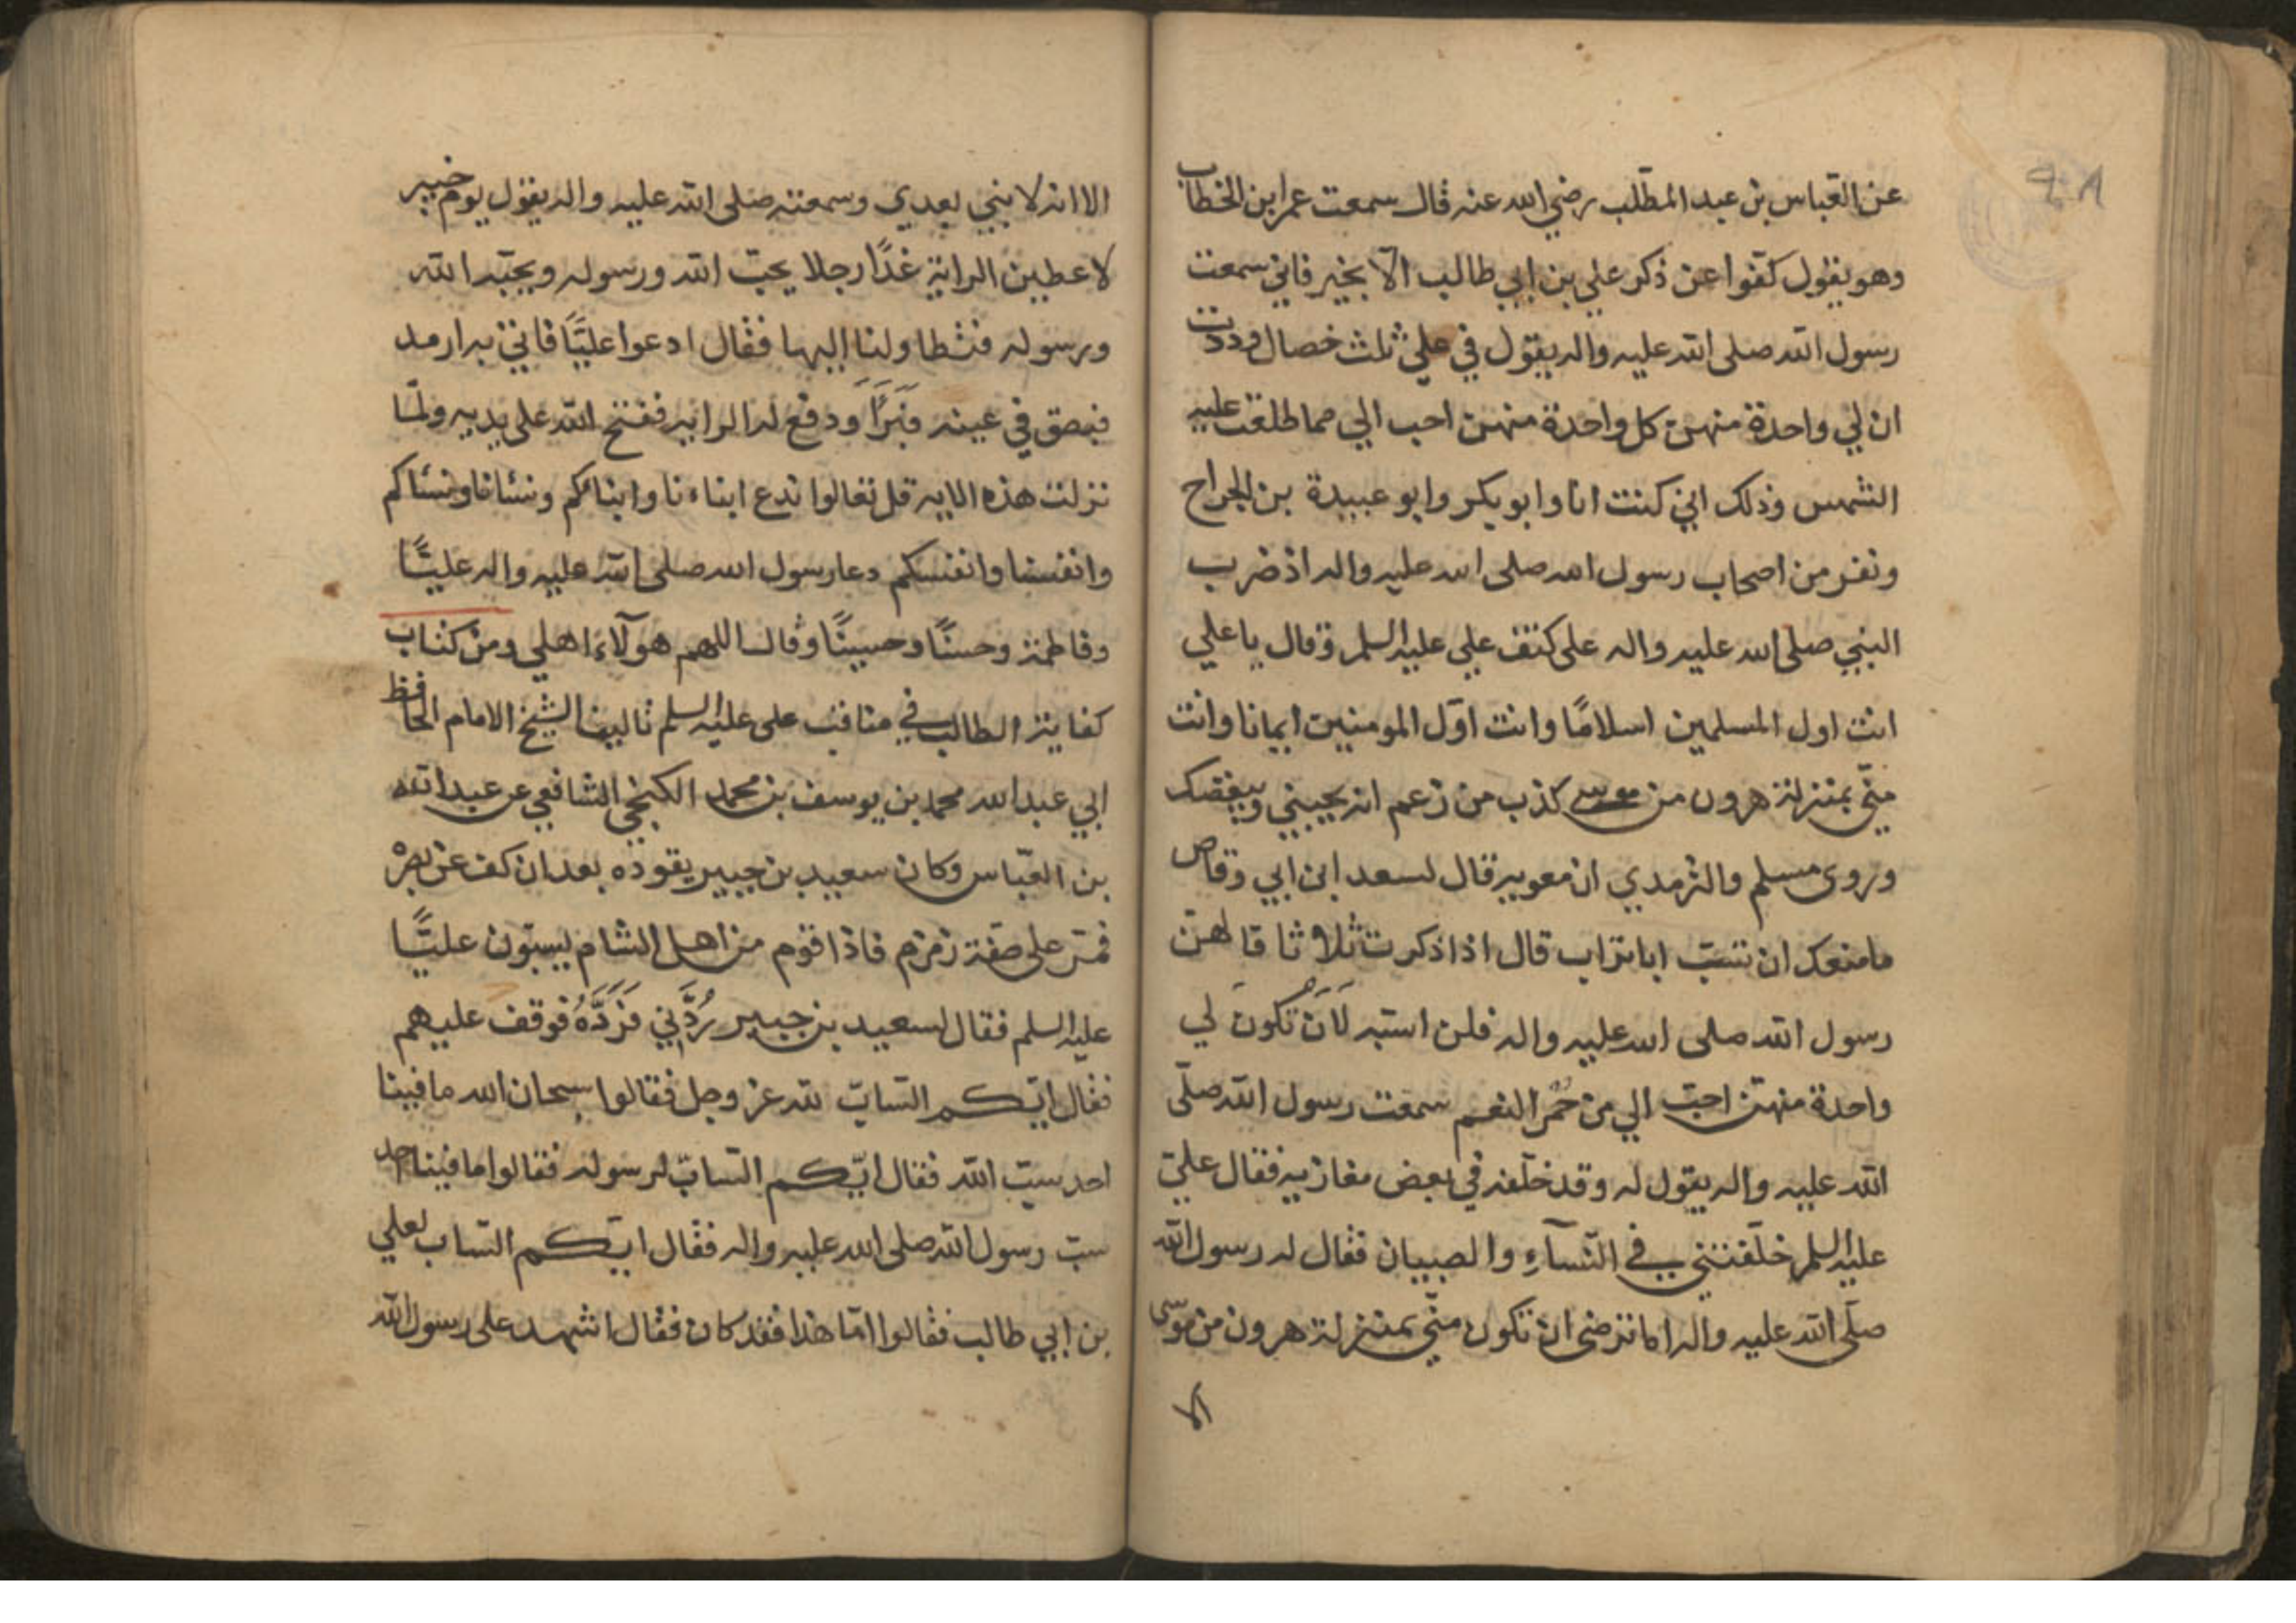 عن العباس بن عبد المطلب رضي الله عنه قال سمعت عمر ابن الخطاب
وهو يقول كفّوا عن ذكر علي بن ابي طالب الّا بخير فاني سمعت
رسول الله صلى الله عليه واله يقول في علي ثلث خصال وددت
ان لي واحدة منهن كل واحدة منهن احب الي مما طلعت عليه
الشمس وذلك اني كنت انا وابو بكر وابو عبيدة بن الجراح
ونفر من اصحاب رسول الله صلى الله عليه واله اذ ضرب
النبي صلى الله عليه واله على كتف علي عليه السلم وقال يا علي
انت اول المسلمين اسلامًا وانت اوّل المومنين ايمانا وانت
منّي بمنزلة هرون من موسى كذب من زعم انه يحبني ويبغضك
وروى مسلم والترمدي ان معويه قال لسعد ابن ابي وقاص
ما منعك ان تسبّ ابا تراب قال اذا ذكرت ثلاثا قالهنّ
رسول الله صلى الله عليه واله فلن اسبّه لَاَن تكونَ لي
واحدة منهنّ احبّ الي من حُمْر النعم سمعت رسول الله صلّى
الله عليه واله يقول له وقد خلّفه في بعض مغازيه فقال عليّ
عليه السلم خلّفتني في النّسآءِ والصبيان فقال له رسول الله
صلّى الله عليه واله اما ترضى ان تكون منّي بمنزلة هرون من موسى
الا
٩٨
الا انه لا نبي بعدي وسمعته صلى الله عليه واله يقول يوم خيبر
لاعطين الراية غدًا رجلا يحبّ الله ورسوله ويحبّه الله
ورسوله فتطاولنا اليها فقال ادعوا عليًّا فاتي به ارمد
فبصق في عينه فَبَرَأَ ودفع له الرايه ففتح الله على يديه ولمّا
نزلت هذه الايه قل تعالوا ندع ابناءنا وابنائكم ونسانا ونساكم
وانفسنا وانفسكم دعا رسول الله صلى الله عليه واله عليًّا
وفاطمة وحسنًا وحسينًا وقال اللهم هولآء اهلي ومن كتاب
كفاية الطالب في مناقب على عليه السلم تاليف الشيخ الامام الحافظ
ابي عبد الله محمد بن يوسف بن محمد الكنجي الشافعي عن عبد الله
بن العبّاس وكان سعيد بن جبير يقوده بعد ان كف عن بصره
فمرّ على صفة زمزم فاذا قوم من اهل الشام يسبّون عليًّا
عليه السلم فقال لسعيد بن جبير رُدَّني فَرَدَّهُ فوقف عليهم
فقال ايّكم السّابّ لله عز وجل فقالوا سبحان الله ما فينا
احد سبّ الله فقال ايّكم السّابّ لرسوله فقالوا ما فينا احد
سبّ رسول الله صلى الله عليه واله فقال ايّكم السّاب لعلي
بن ابي طالب فقالوا امّا هذا فقد كان فقال اشهد على رسول الله